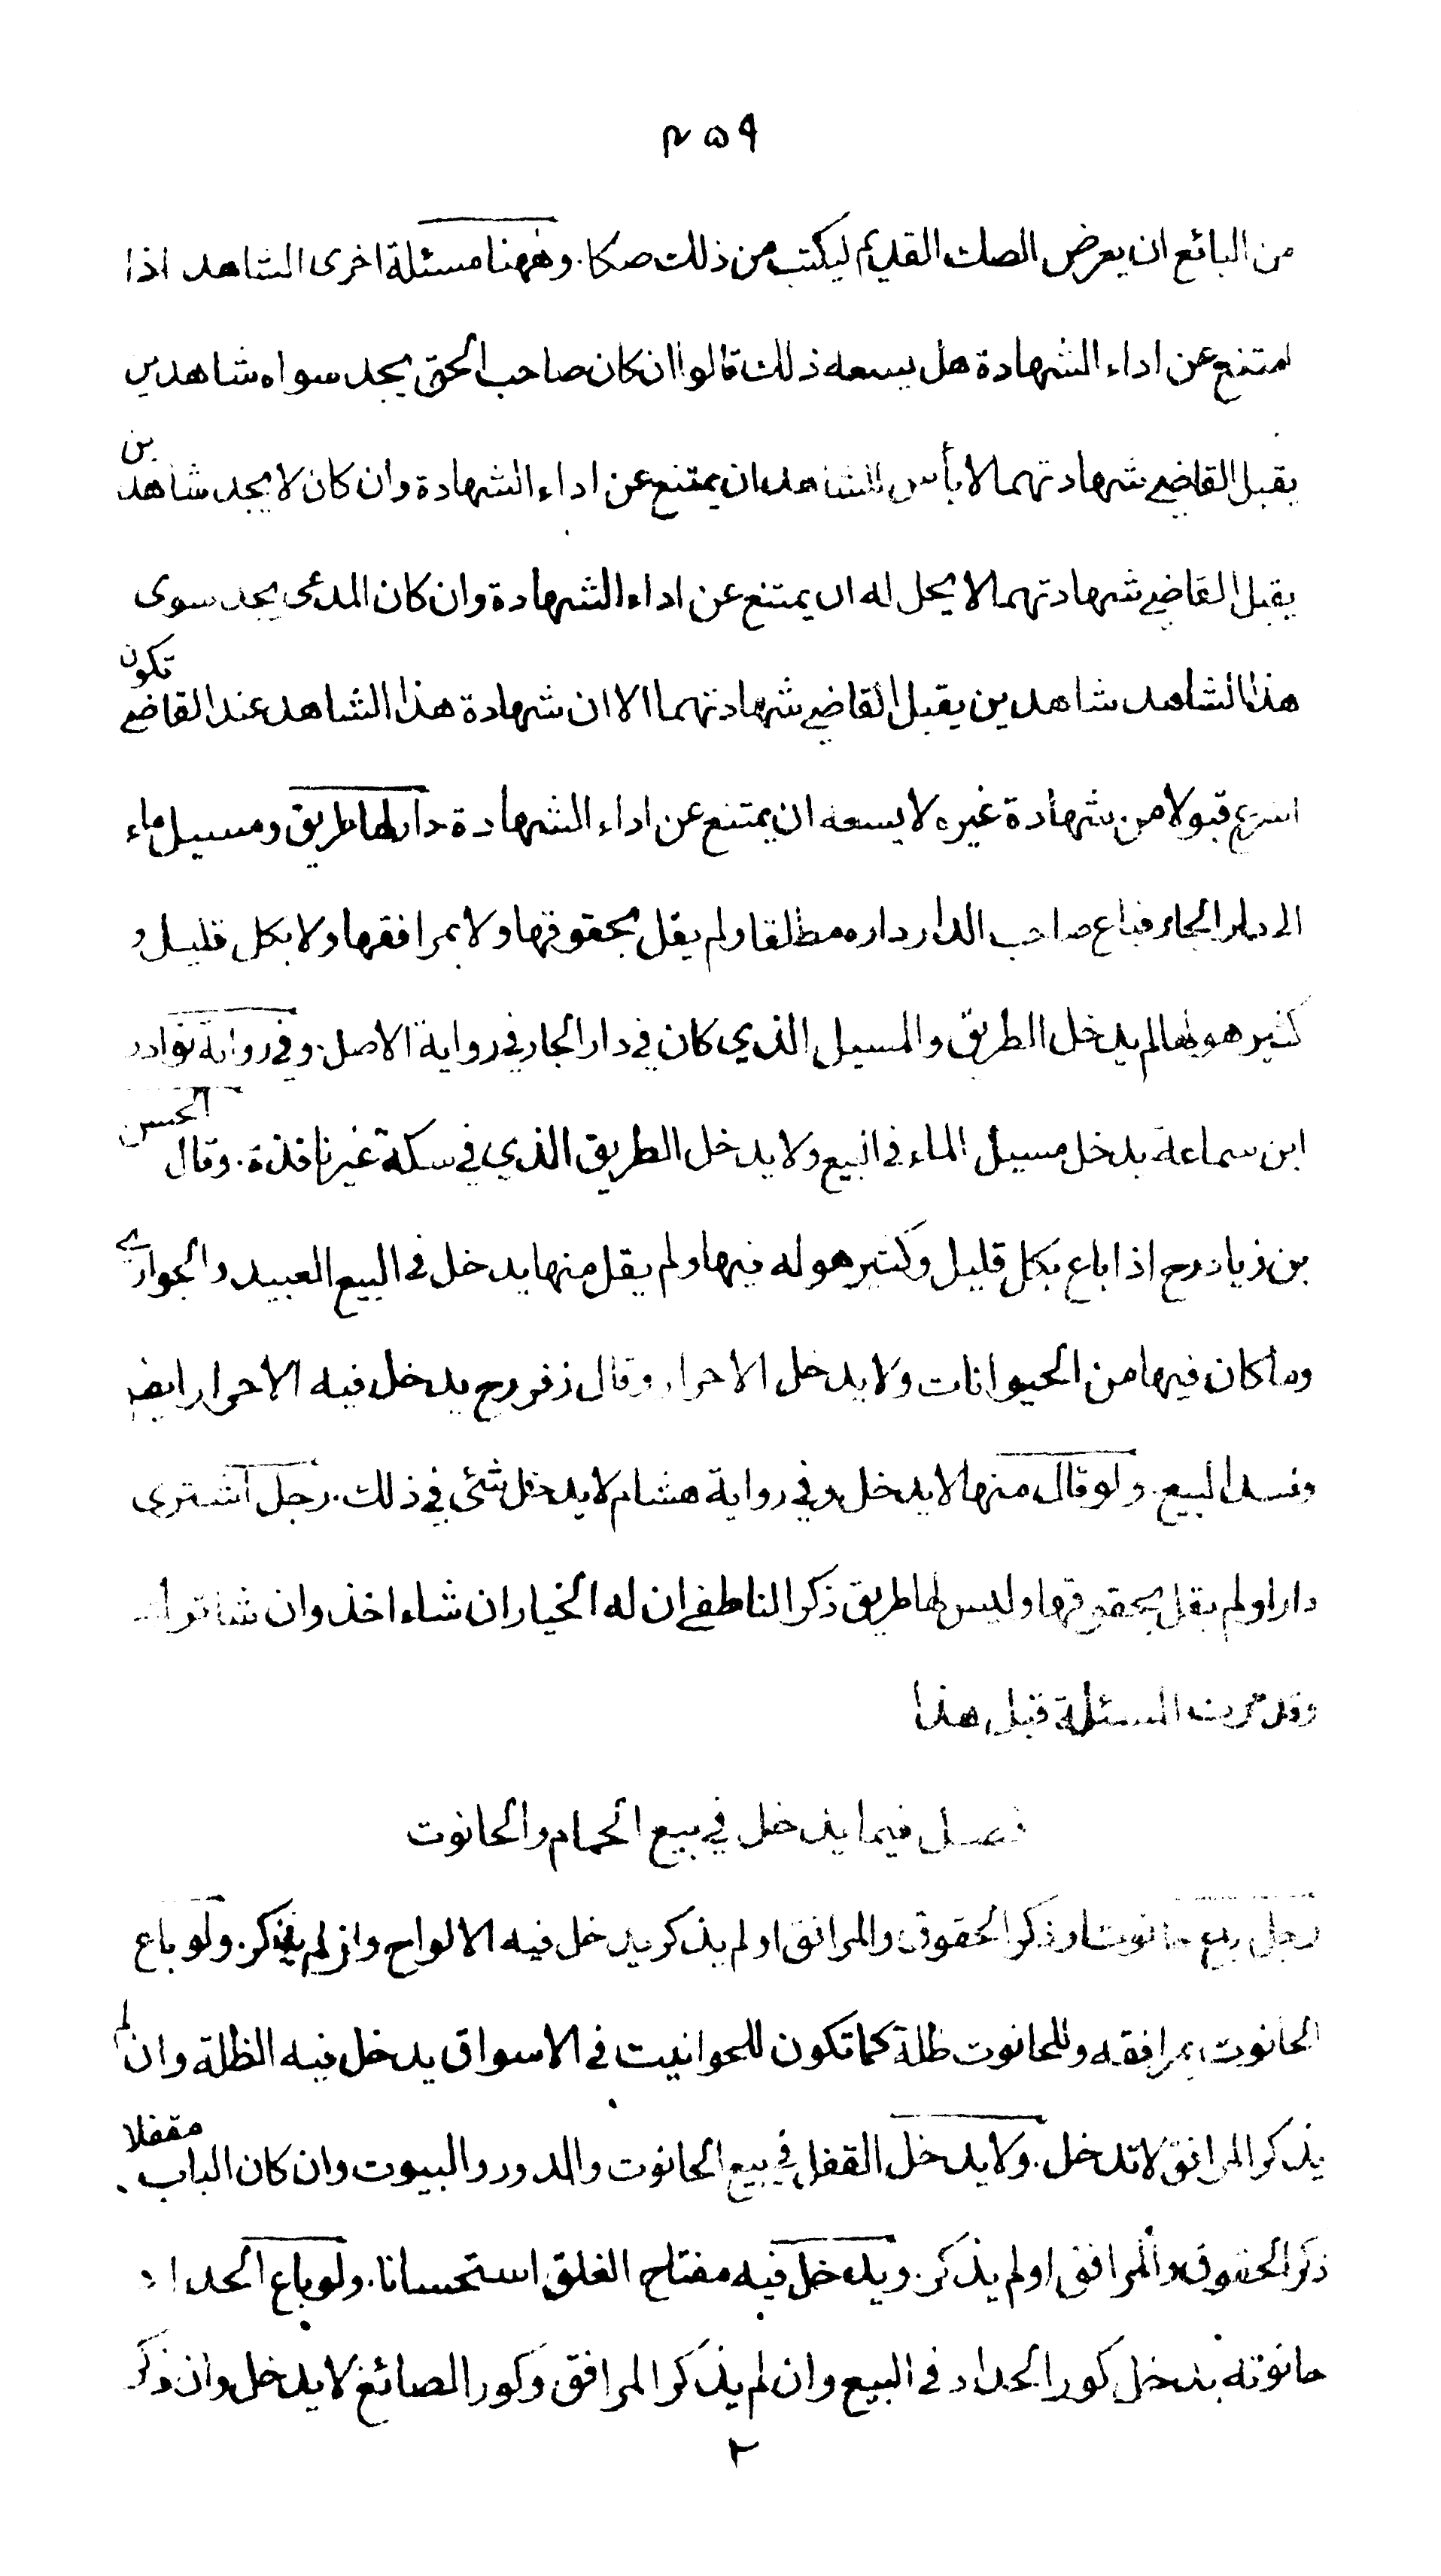 ٢٥٩
من البائع ان يعرض الصك القديم ليكتب من ذلك صكا. وههنا مسئلة اخرى الشاهد اذا
امتنع عن اداء الشهادة هل يسعه ذلك قالوا ان كان صاحب الحق يجد سواه شاهدين
يقبل القاضي شهادتهما لا بأس للشاهد ان يمتنع عن اداء الشهادة وان كان لا يجد شاهدين
يقبل القاضي شهادتهما لا يحل له ان يمتنع عن اداء الشهادة وان كان المدعى يجد سوى
هذا الشاهد شاهدين يقبل القاضي شهادتهما الا ان شهادة هذا الشاهد عند القاضي تكون
اسرع قبولا من شهادة غيره لا يسعه ان يمتنع عن اداء الشهادة. دار لها طريق ومسيل ماء
الى دار الجار فباع صاحب الدار داره مطلقا ولم يقل بحقوقها ولا بمرافقها ولا بكل قليل و
كثير هو لها لم يدخل الطريق والمسيل الذي كان في دار الجار في رواية الاصل. وفي رواية نوادر
ابن سماعة يدخل مسيل الماء في البيع ولا يدخل الطريق الذي في سكة غير نافذة. وقال الحسن
بن زياد رح اذا باع بكل قليل وكثير هو له فيها ولم يقل منها يدخل في البيع العبيد والجوارى
وما كان فيها من الحيوانات ولا يدخل الاحرار وقال زفر رح يدخل فيه الاحرار ايضا
وفسد البيع. ولو قال منها لا يدخل وفي رواية هشام لا يدخل شئ في ذلك. رجل اشترى
دارا ولم يقل بحقوقها وليس لها طريق ذكر الناطفي ان له الخيار ان شاء اخذ وان شاء ترك
وقد مرت المسئلة قبل هذا
فصل فيما يدخل في بيع الحمام والحانوت
رجل باع حانوتا وذكر الحقوق والمرافق او لم يذكر يدخل فيه الالواح وان لم يذكر. ولو باع
الحانوت بمرافقه وللحانوت ظلة كما تكون للحوانيت في الاسواق يدخل فيه الظلة وان لم
يذكر المرافق لا تدخل. ولا يدخل القفل في بيع الحانوت والدور والبيوت وان كان الباب مقفلا
ذكر الحقوق والمرافق او لم يذكر. ويدخل فيه مفتاح الغلق استحسانا. ولو باع الحداد
حانوته يدخل كور الحداد في البيع وان لم يذكر المرافق وكور الصائغ لا يدخل وان ذكر
٢